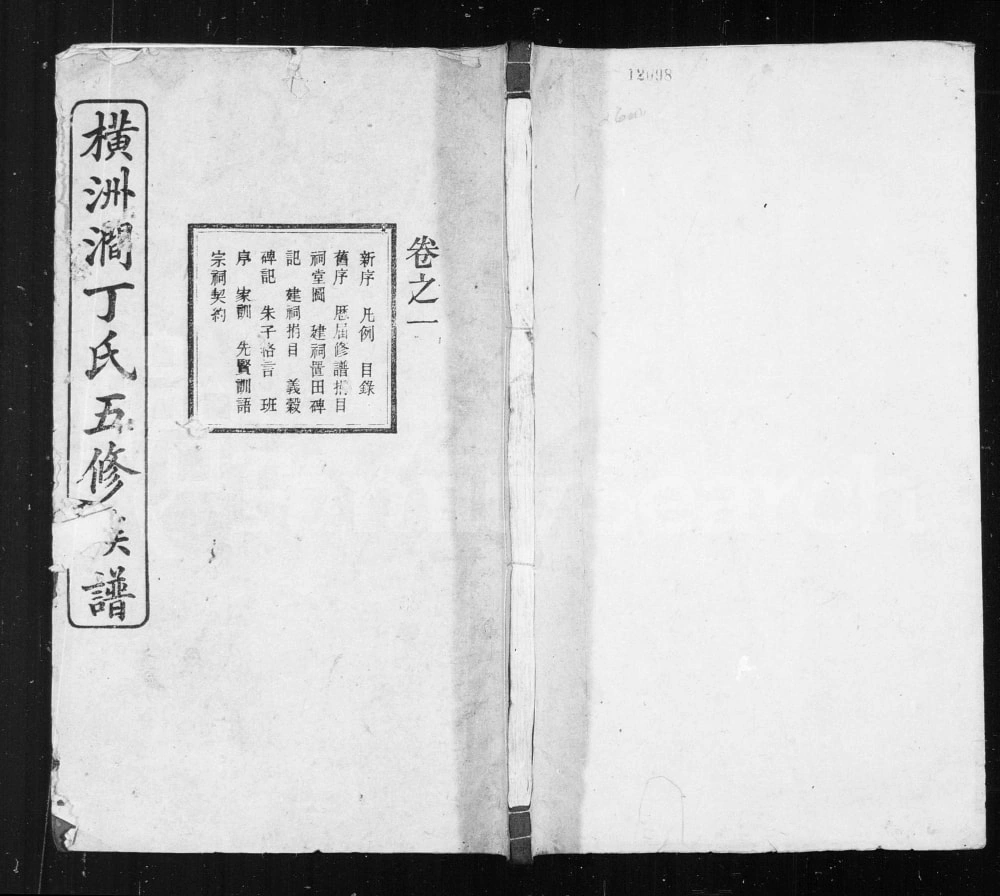 12698
卷之一
新序 凡例 目錄
舊序 歷屆修譜捐目
祠堂圖 建祠置田碑
記 建祠捐目 義穀
碑記 朱子格言 班
序 家訓 先賢訓語
宗祠契約
橫洲澗丁氏五修族譜